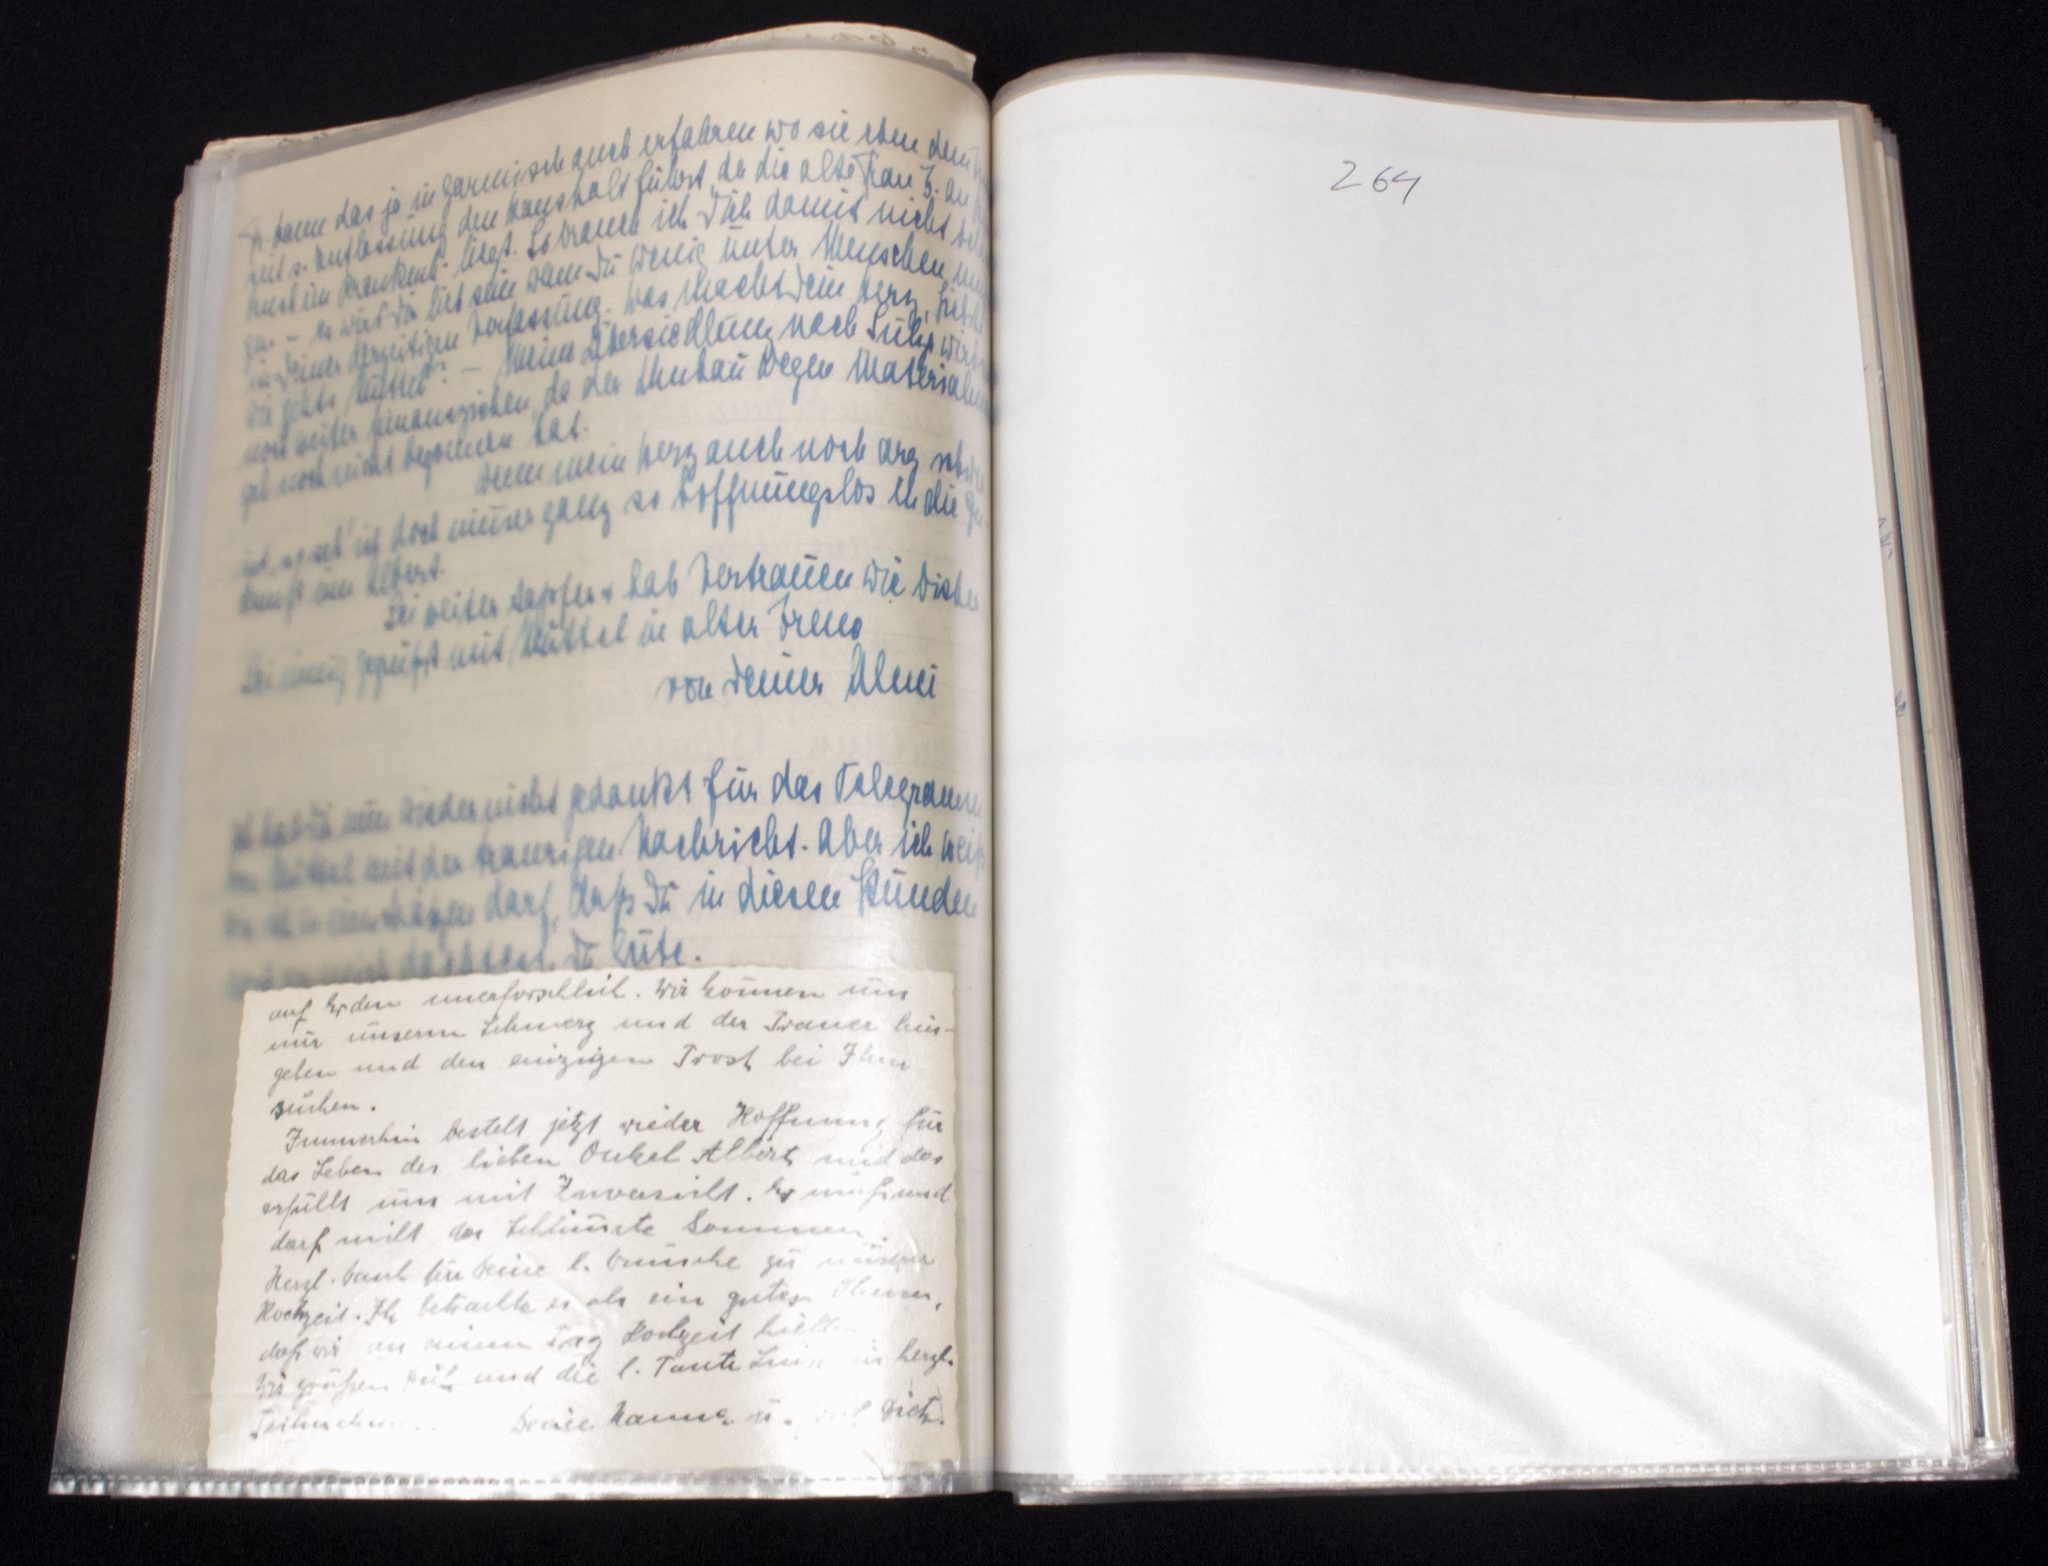 kann das ja in Garmisch auch erfahren wo sie eben dem
seit s. Entlassung den Haushalt führt, da die alte Frau Z. an
im Krankenh. liegt. So brauch ich Dich damit nicht
es wird Dir lieb sein wenn Du wenig unter Menschen
in Deiner derzeitigen Verfassung. Was macht Dein Herz, liebe
wie gehts Muttel? — Meine Übersiedlung nach Suhl wird
noch weiter hinausziehen, da der Umbau wegen Material
noch nicht begonnen hat.
Wenn mein Herz auch noch arg
ist, so seh ich doch nimmer ganz so hoffnungslos in die
um Albert.
Sei weiter tapfer & hab Vertrauen wie bisher
Sei innig gegrüßt mit Muttel in alter Treue
von Deiner Almi
Ich hab Dir nun wieder nicht gedankt für das Telegramm
mit der traurigen Nachricht. Aber ich weiß
darf, daß Du in diesen Stunden
Du Gute.
auf Erden unerforschlich. Wir können uns
nur unserm Schmerz und der Trauer hin-
geben und den einzigen Trost bei Ihm
suchen.
Immerhin besteht jetzt wieder Hoffnung für
das Leben des lieben Onkel Albert und das
erfüllt uns mit Zuversicht. Es muß und
darf nicht das Schlimmste kommen.
Herzl. Dank für Deine l. Wünsche zu unserer
Hochzeit. Ich betrachte es als ein gutes Omen,
daß wir an einem Tag Hochzeit hielten
Wir grüßen Dich und die l. Tante Luise in herzl.
Teilnahme Deine Hanna
264